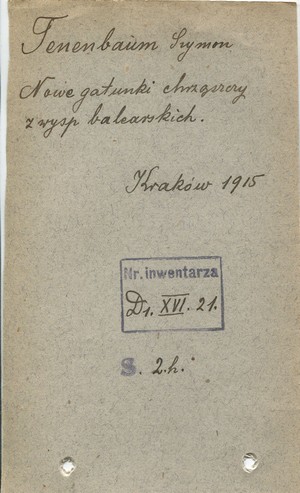 Tenenbaum Szymon
Nowe gatunki chrząszczy
z wysp balearskich.
Kraków 1915
Nr. inwentarza
D1. XVI. 21.
S. 2.h.